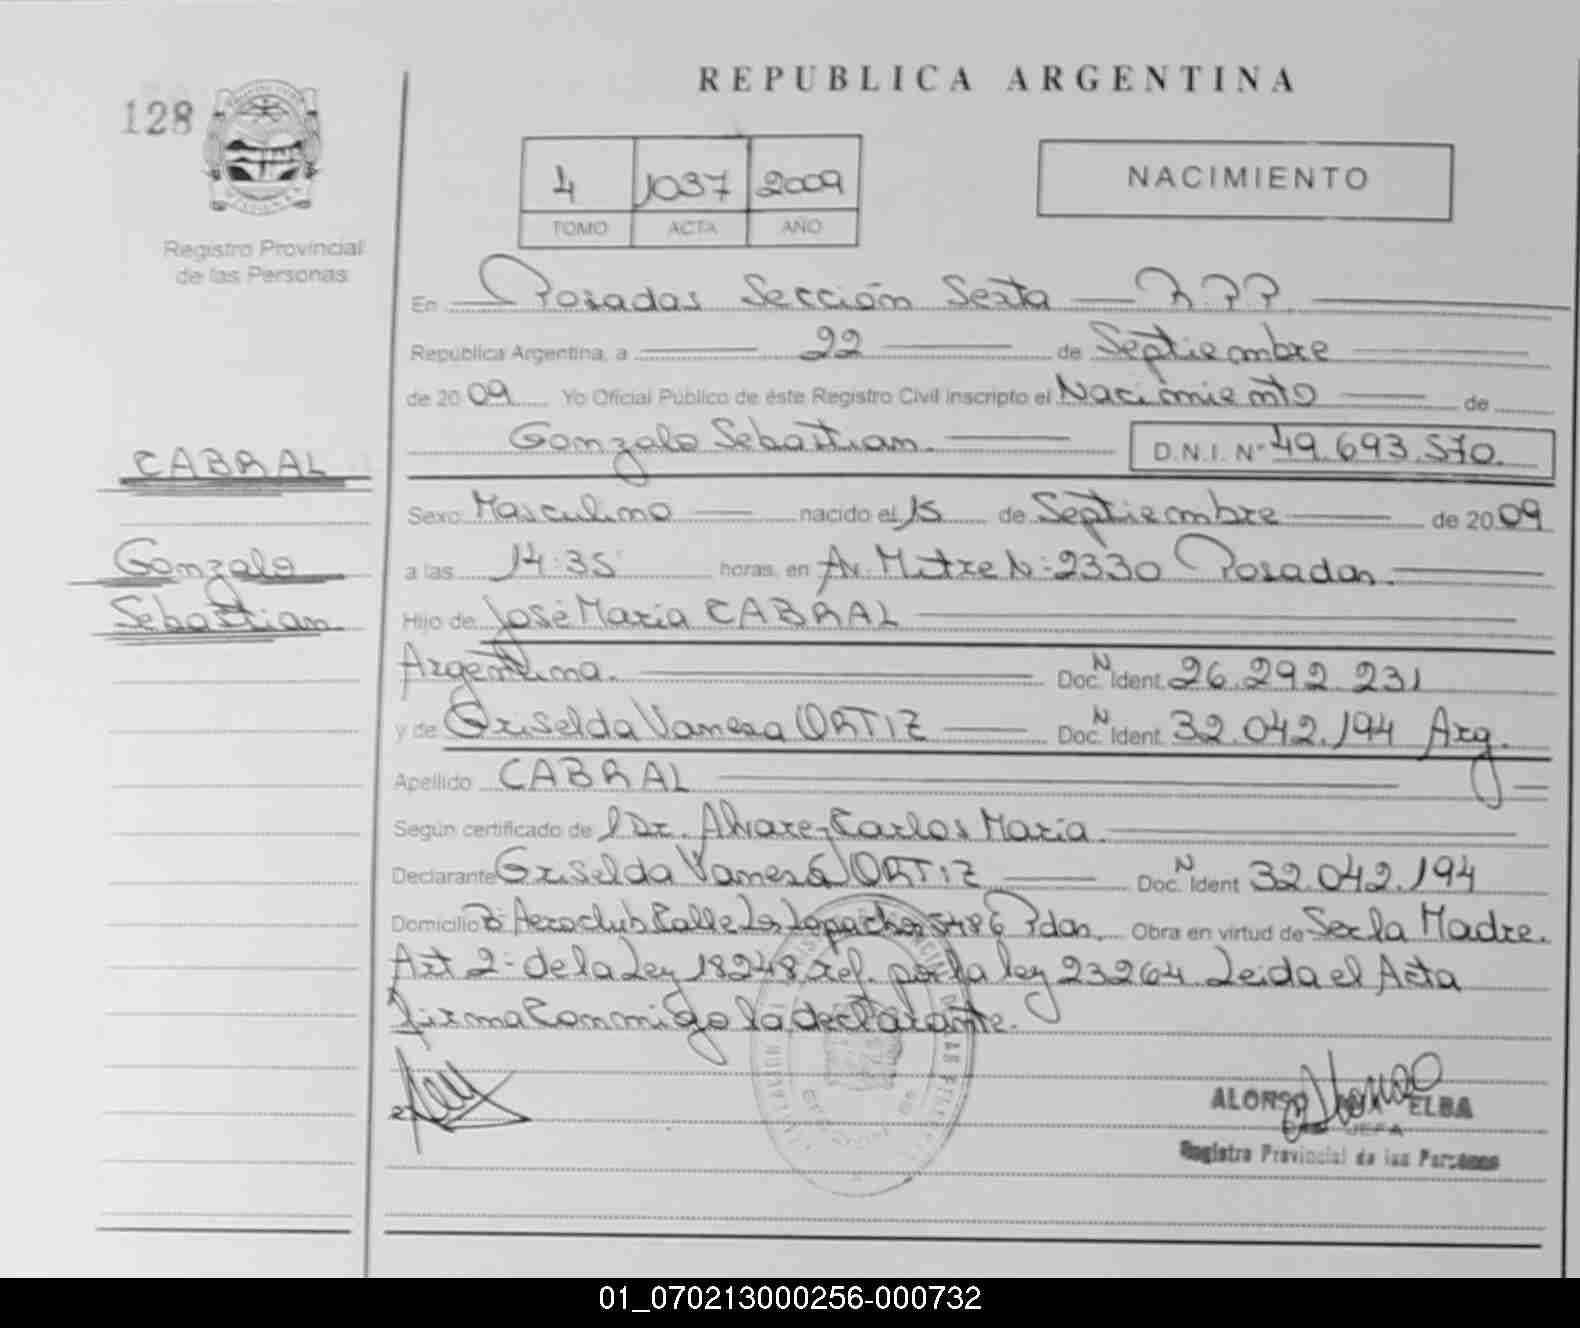 REPUBLICA ARGENTINA
128
4 1037 2009
TOMO ACTA AÑO
NACIMIENTO
Registro Provincial
de las Personas
En Posadas Sección Sexta R.P.P.
República Argentina, a 22 de Septiembre
de 2009 Yo Oficial Público de éste Registro Civil inscripto el Nacimiento de
Gonzalo Sebastian. D.N.I. Nº 49.693.570.
CABRAL
Sexo Masculino nacido el 15 de Septiembre de 2009
Gonzalo
a las 14:35 horas, en Av. Mitre N: 2330 Posadas.
Sebastian.
Hijo de José Maria CABRAL
Argentina. Doc. N Ident. 26.292.231
y de Griselda Vanesa ORTIZ Doc. N Ident. 32.042.194 Arg.
Apellido CABRAL
Según certificado de l Dr. Alvarez Carlos Maria.
Declarante Griselda Vanesa ORTIZ Doc. N Ident 32.042.194
Domicilio Bº Aeroclub Calle Los Lapachos 5486 Pdas. Obra en virtud de Ser la Madre.
Art 2- de la Ley 18248 ref. por la ley 23264 Leida el Acta
firma Conmigo la declarante.
ALONSO ELBA
JEFA
Registro Provincial de las Personas
01_070213000256-000732